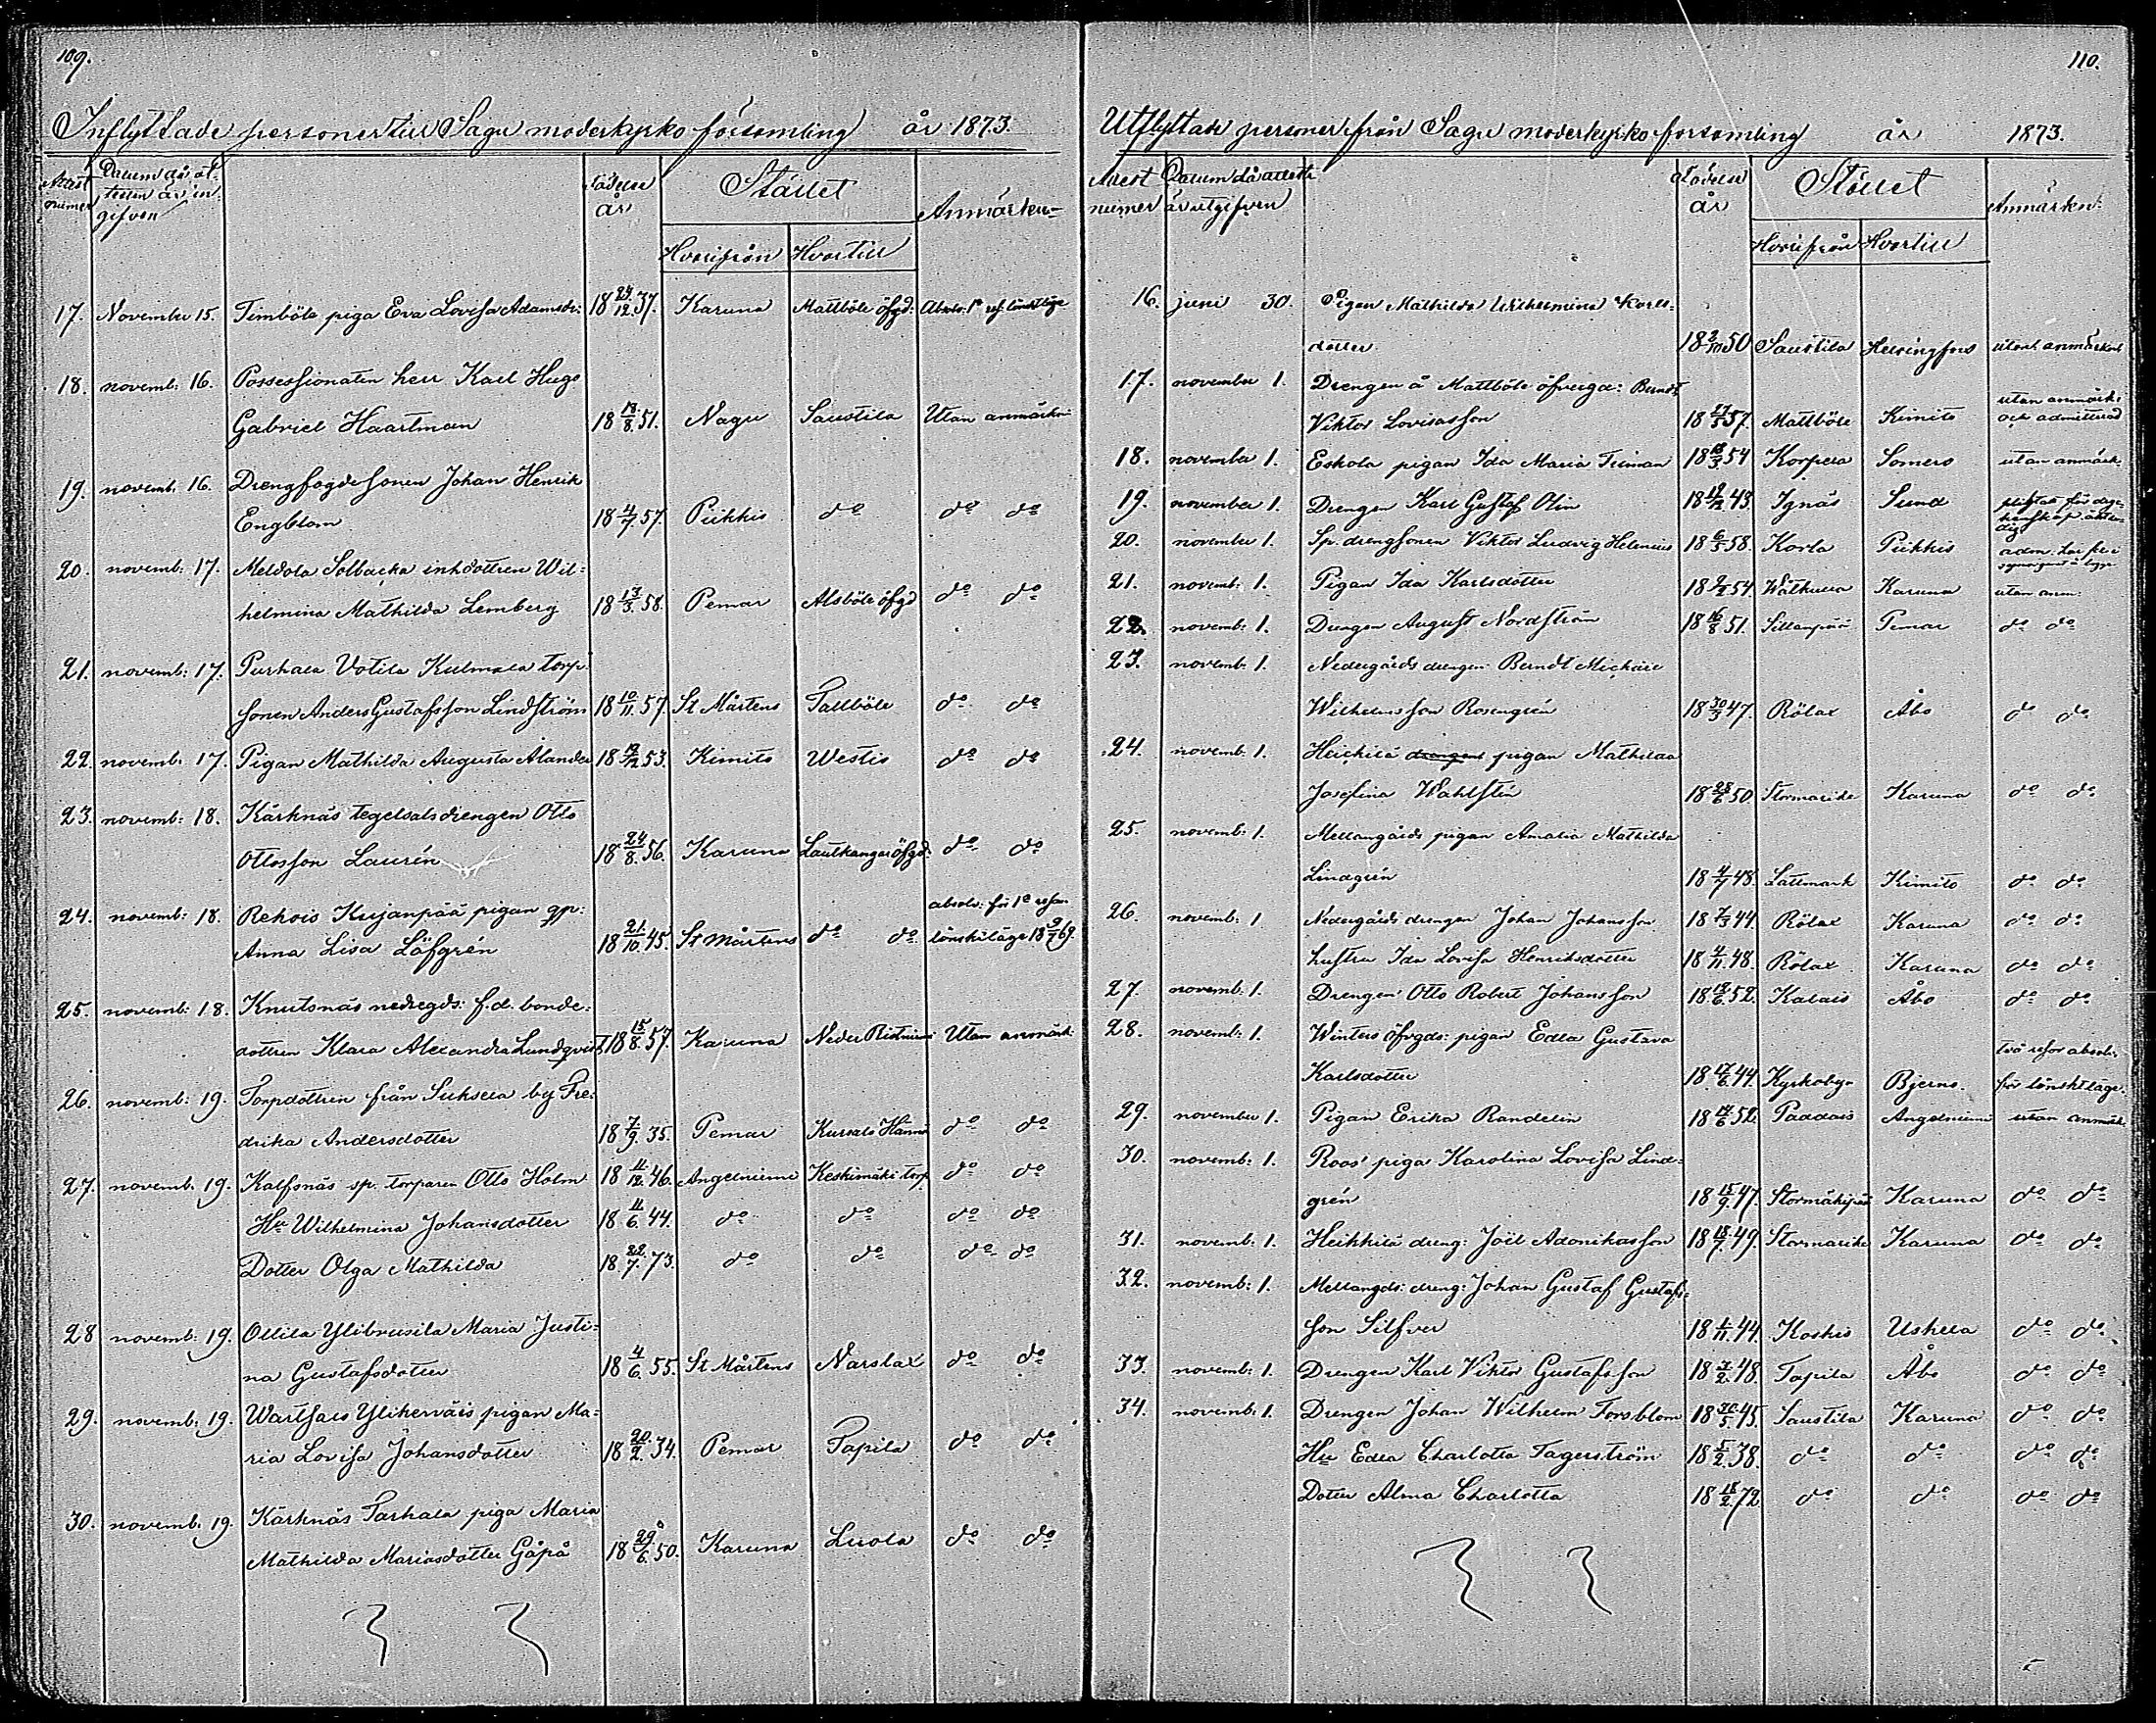 109.
Inflyttade personer till Sagu moderkyrko församling år 1873.
Attest numer
Datum då attesten är ingifven
Födelse år
Stället
Hvarifrån Hvartill
Anmärkn.
17. November 15. Timböle piga Eva Lovisa Adamsdr: 18 24/12 37. Karuna Mattböle öfgd:
18. novemb: 16. Possessionaten herr Karl Hugo
Gabriel Haartman 18 18/8 51. Nagu Saustila Utan anmärkn
19. novemb. 16. Drengfogdesonen Johan Henrik
Engblom 18 4/7 57. Piikkis do do do
20. novemb: 17. Meldola Solbacka inh:dottren Wil=
helmina Mathilda Lemberg 18 13/3 58. Pemar Alsböle öfgd do do
21. novemb: 17. Purhala Votila Kulmala torp.
sonen Anders Gustafsson Lindström 18 10/11 57. St Mårtens Pallböle do do
22. novemb: 17. Pigan Mathilda Augusta Ålander 18 12/12 53. Kimito Westis do do
23. novemb: 18. Kärknäs tegelsalsdrengen Otto
Ottosson Laurén 18 24/8 56. Karuna Lautkangar öfgd. do do
24. novemb: 18. Rehois Kujanpää pigan qp:
Anna Lisa Löfgrén 18 21/10 45. St Mårtens do do
absolv: för 1a resan
lönskiläge 18 9/7 69.
25. novemb: 18. Knutsnäs nedregds: f.d. bonde=
dottren Klara Alexandra Lundqvist 18 15/8 57. Karuna Neder Ristniemi Utan anmärk:
26. novemb: 19. Torpdottren från Suksela by Fre=
drika Andersdotter 18 7/9 35. Pemar Kursals Hanni do do
27. novemb. 19. Kalfsnäs sp. torparen Otto Holm 18 11/12 46. Angelniemi Keskimäki torp do do
Hu Wilhelmina Johansdotter 18 11/6 44. do do do do
Dotter Olga Mathilda 18 22/7 73. do do do do
28 novemb: 19. Ollila Ylibrusila Maria Justi=
na Gustafsdotter 18 4/6 55. St Mårtens Narslax do do
29. novemb: 19. Wartsais Ylikernäis pigan Ma=
ria Lovisa Johansdotter 18 20/2 34. Pemar Papila do do
30. novemb. 19. Kärknäs Parhala piga Maria
Mathilda Mariasdotter Gåpå 18 29/6 50. Karuna Luola do do
110.
Utflyttade personer från Sagu moderkyrko forsamling år 1873.
Attest numer
Datum då attesten är utgifven
Födelse år
Stället
Hvarifrån Hvartill
Anmärkn:
16. juni 30. Pigan Mathilda Wilhelmina Karls=
dotter 18 2/10 50 Saustila Helsingfors utan anmärkn
17. november 1. Drengen å Mattböle öfvergd: Berndt
Viktor Lovisasson 18 27/3 57. Mattböle Kimito utan anmärk: och admitterad
18. november 1. Eskola pigan Ida Maria Friman 18 18/3 54 Korpela Somero utan anmärk.
19. november 1. Drengen Karl Gustaf Olin 18 12/12 43. Ignäs Sund
20. november 1. Sp. drengsonen Viktor Ludvig Helenius 18 6/5 58. Korla Piikkis
21. novemb: 1. Pigan Ida Karlsdotter 18 9/2 54. Walkula Karuna utan anm:
22. novemb: 1. Drengen August Nordström 18 16/8 51. Sillanpää Pemar do do
23. novemb: 1. Nedergårds drengen Berndt Michael
Wilhelmsson Rosengrén 18 30/3 47. Rölax Åbo do do
24. novemb: 1. Heickilä drengen pigan Mathilda
Josefina Wahlstén 18 28/6 50 Stormarike Karuna do do
25. novemb: 1. Mellangårds pigan Amalia Mathilda
Lindgrén 18 4/7 48. Lallmark Kimito do do
26. novemb: 1. Nedergårds drengen Johan Johansson 18 7/3 44. Rölax Karuna do do
hustru Ida Lovisa Henriksdotter 18 4/11 48. Rölax Karuna do do
27. novemb: 1. Drengen Otto Robert Johansson 18 12/6 52. Kalais Åbo do do
28. novemb: 1. Winters öfvgds: pigan Edla Gustava
Karlsdotter 18 17/6 44. Kyrkoby Bjerno två resor absolv. för lönskt läge.
29. november 1. Pigan Erika Randelin 18 14/6 52. Paddais Angelniemi utan anmärk.
30. novemb: 1. Roos' piga Karolina Lovisa Lind=
grén 18 15/9 47. Karuna do do
31. novemb: 1. Heikkilä dreng: Joël Adonikasson 18 18/7 49. Stormarike Karuna do do
32. novemb: 1. Mellangds: dreng: Johan Gustaf Gustafs=
son Silfver 18 1/11 44. Koskis Uskela do do
33. novemb: 1. Drengen Karl Viktor Gustafsson 18 3/2 48. Papila Åbo do do
34. novemb: 1. Drengen Johan Wilhelm Forsblom 18 20/5 45. Saustila Karuna do do
Hu Edla Charlotta Fagerström 18 1/2 38. do do do do
Dotter Alma Charlotta 18 18/2 72 do do do do